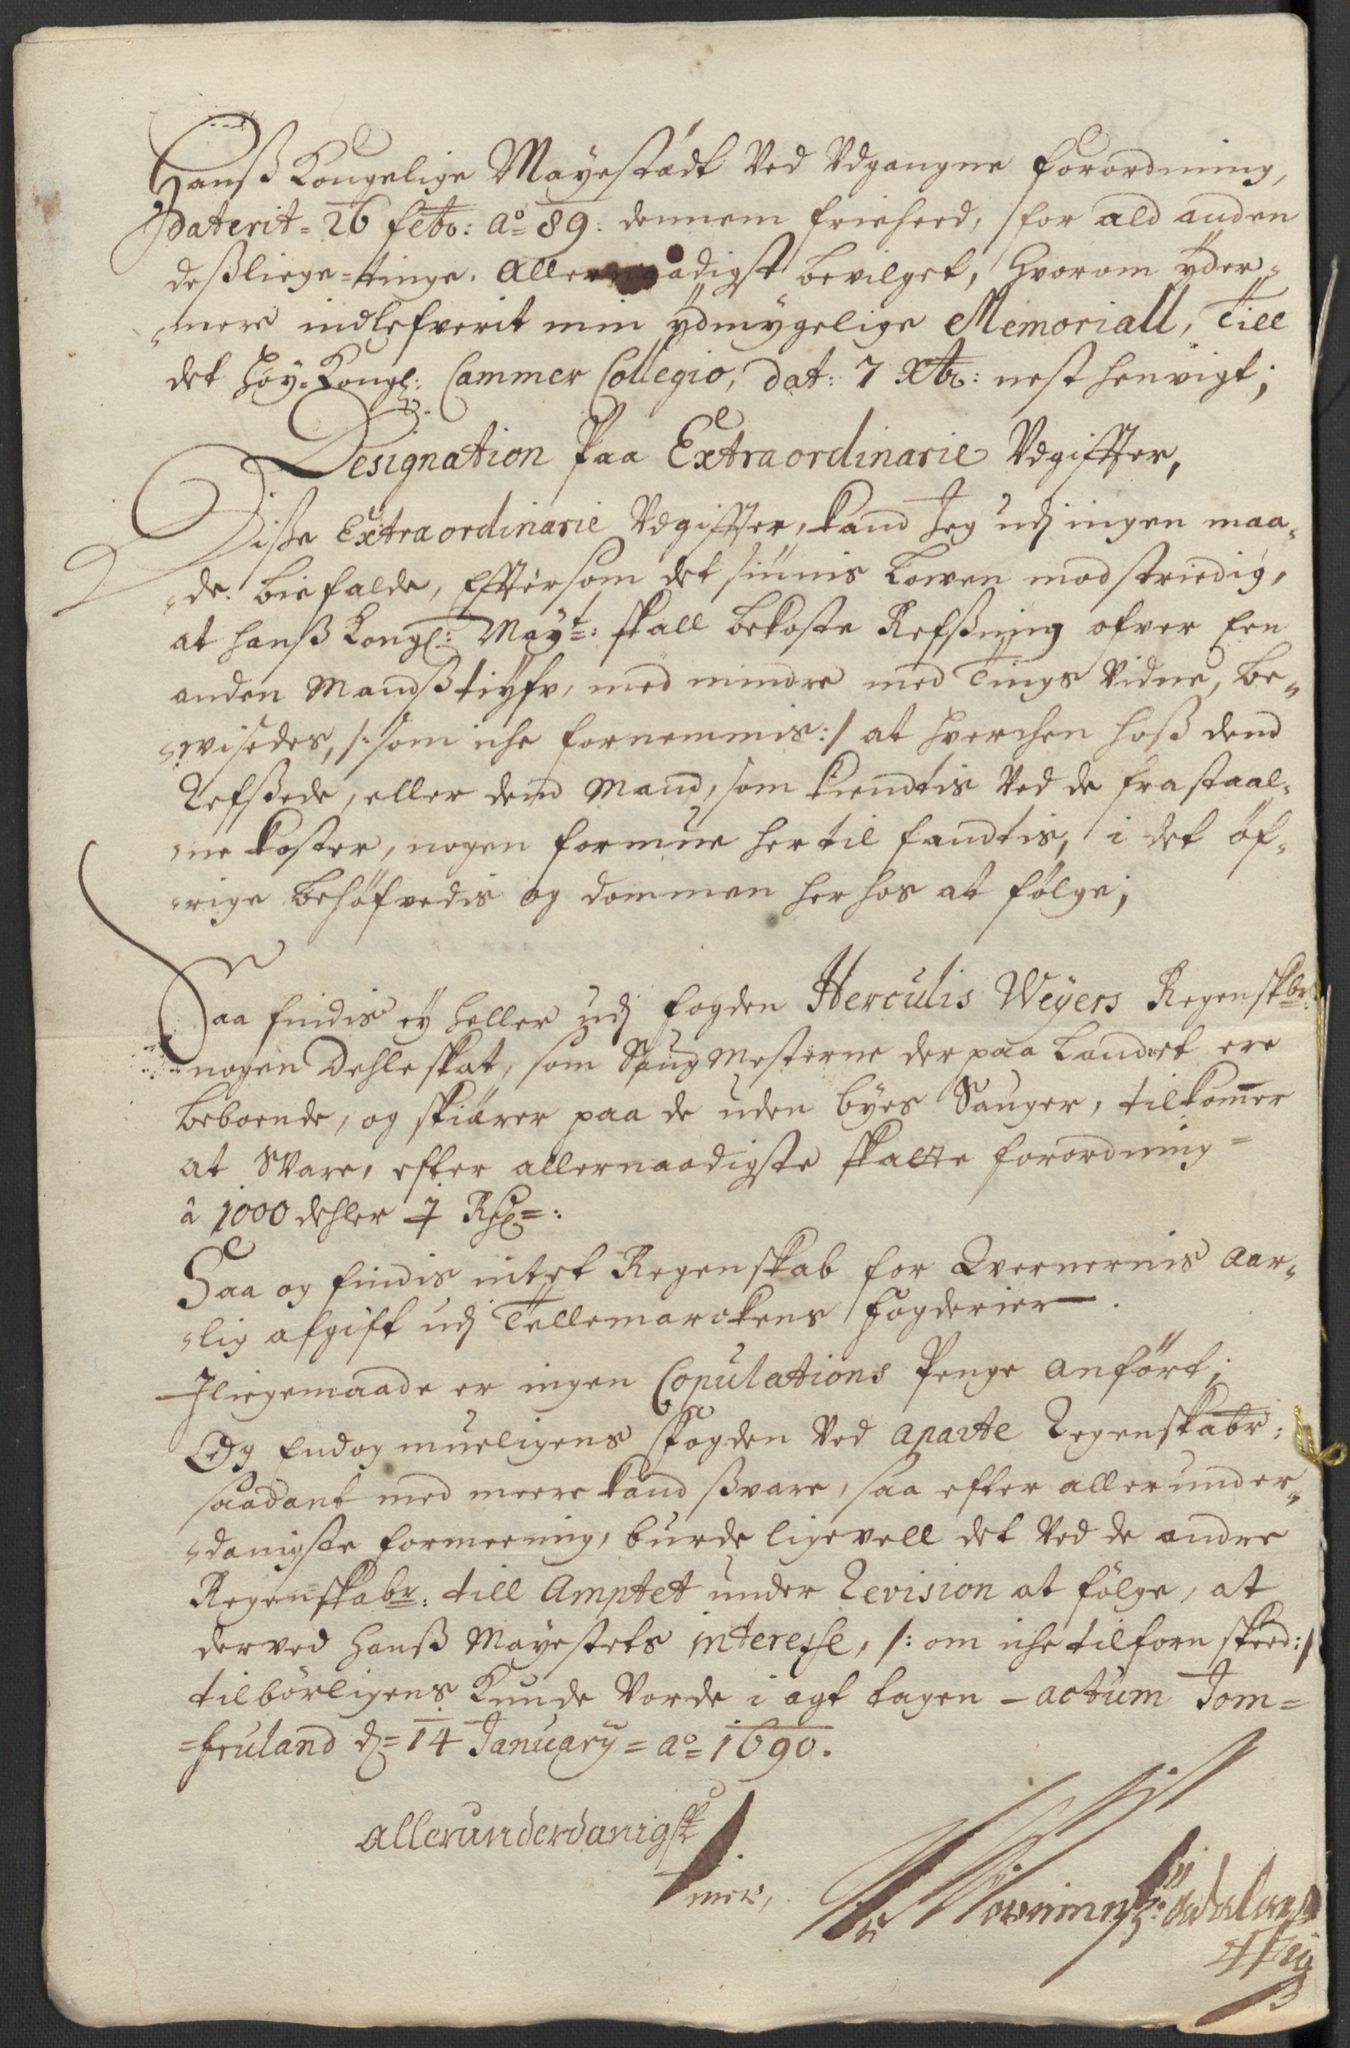 Hanß Kongelige Mayestädt Ved Udgangne forordning,
Daterit = 26 febr: a° 89: dennem frieheed, for ald anden
deßliege = tinge. Allernaadigst bevilget, hvorom yder=
=mere indlefverit min ydmygelige Memoriall, Till
det Höy= Kongl: Cammer Collegio, dat: 7 Xbr: nest henvigt;
Designation paa Extraordinarie Udgiffter,
Disse Extraordinarie Udgiffter, kand Jeg udj ingen maa=
=de. biefalde, Efftersom det siunis Lowen modstriedig,
at hanß Kongl: Mayt: skall bekoste Refsning ofver Een
anden Mandß tiyfv, med mindre med Tings Vidne, be=
=wisedes, /: som iche fornemmis :/ at hverchen hoß dend
Refßede, eller dend Mand, som kiendtis Ved de frastaal=
=ne koster, nogen formue hertil fandtis, i det öf=
=rige behöfvedis og dommen herhos at fölge;
Saa findis ey heller udj fogden Herculis Weyers Regenskbr:
nogen Dehleskat, som Saugmesterne der paa Landet ere
beboende, og skiärer paa de uden byes Sauger, tilkomer
at Svare, efter allernaadigste skatte forordning=
â 1000 dehler 1 Rd=:
Saa og findis intet Regenskab for Qvernernis Aar=
=lig afgift udj Tellemarckens fogderier.
Jliegemaade er ingen Copulations Penge anfört;
Og Endog mueligens fogden Ved aparte Regenskabr:
saadant med meere kand ßvare, saa efter allerunder=
=danigste formeening, burde ligevell det Ved de andre
Regenskabr: till Amptet under Revision at fölge, at
derved Hanß Mayestets interesse, /: om iche tilforn skeed :/
tilbörligens Kunde Vorde i agt tagen – actum Jom=
=fruland d= 14 January = a° = 1690.
allerunderdanigst